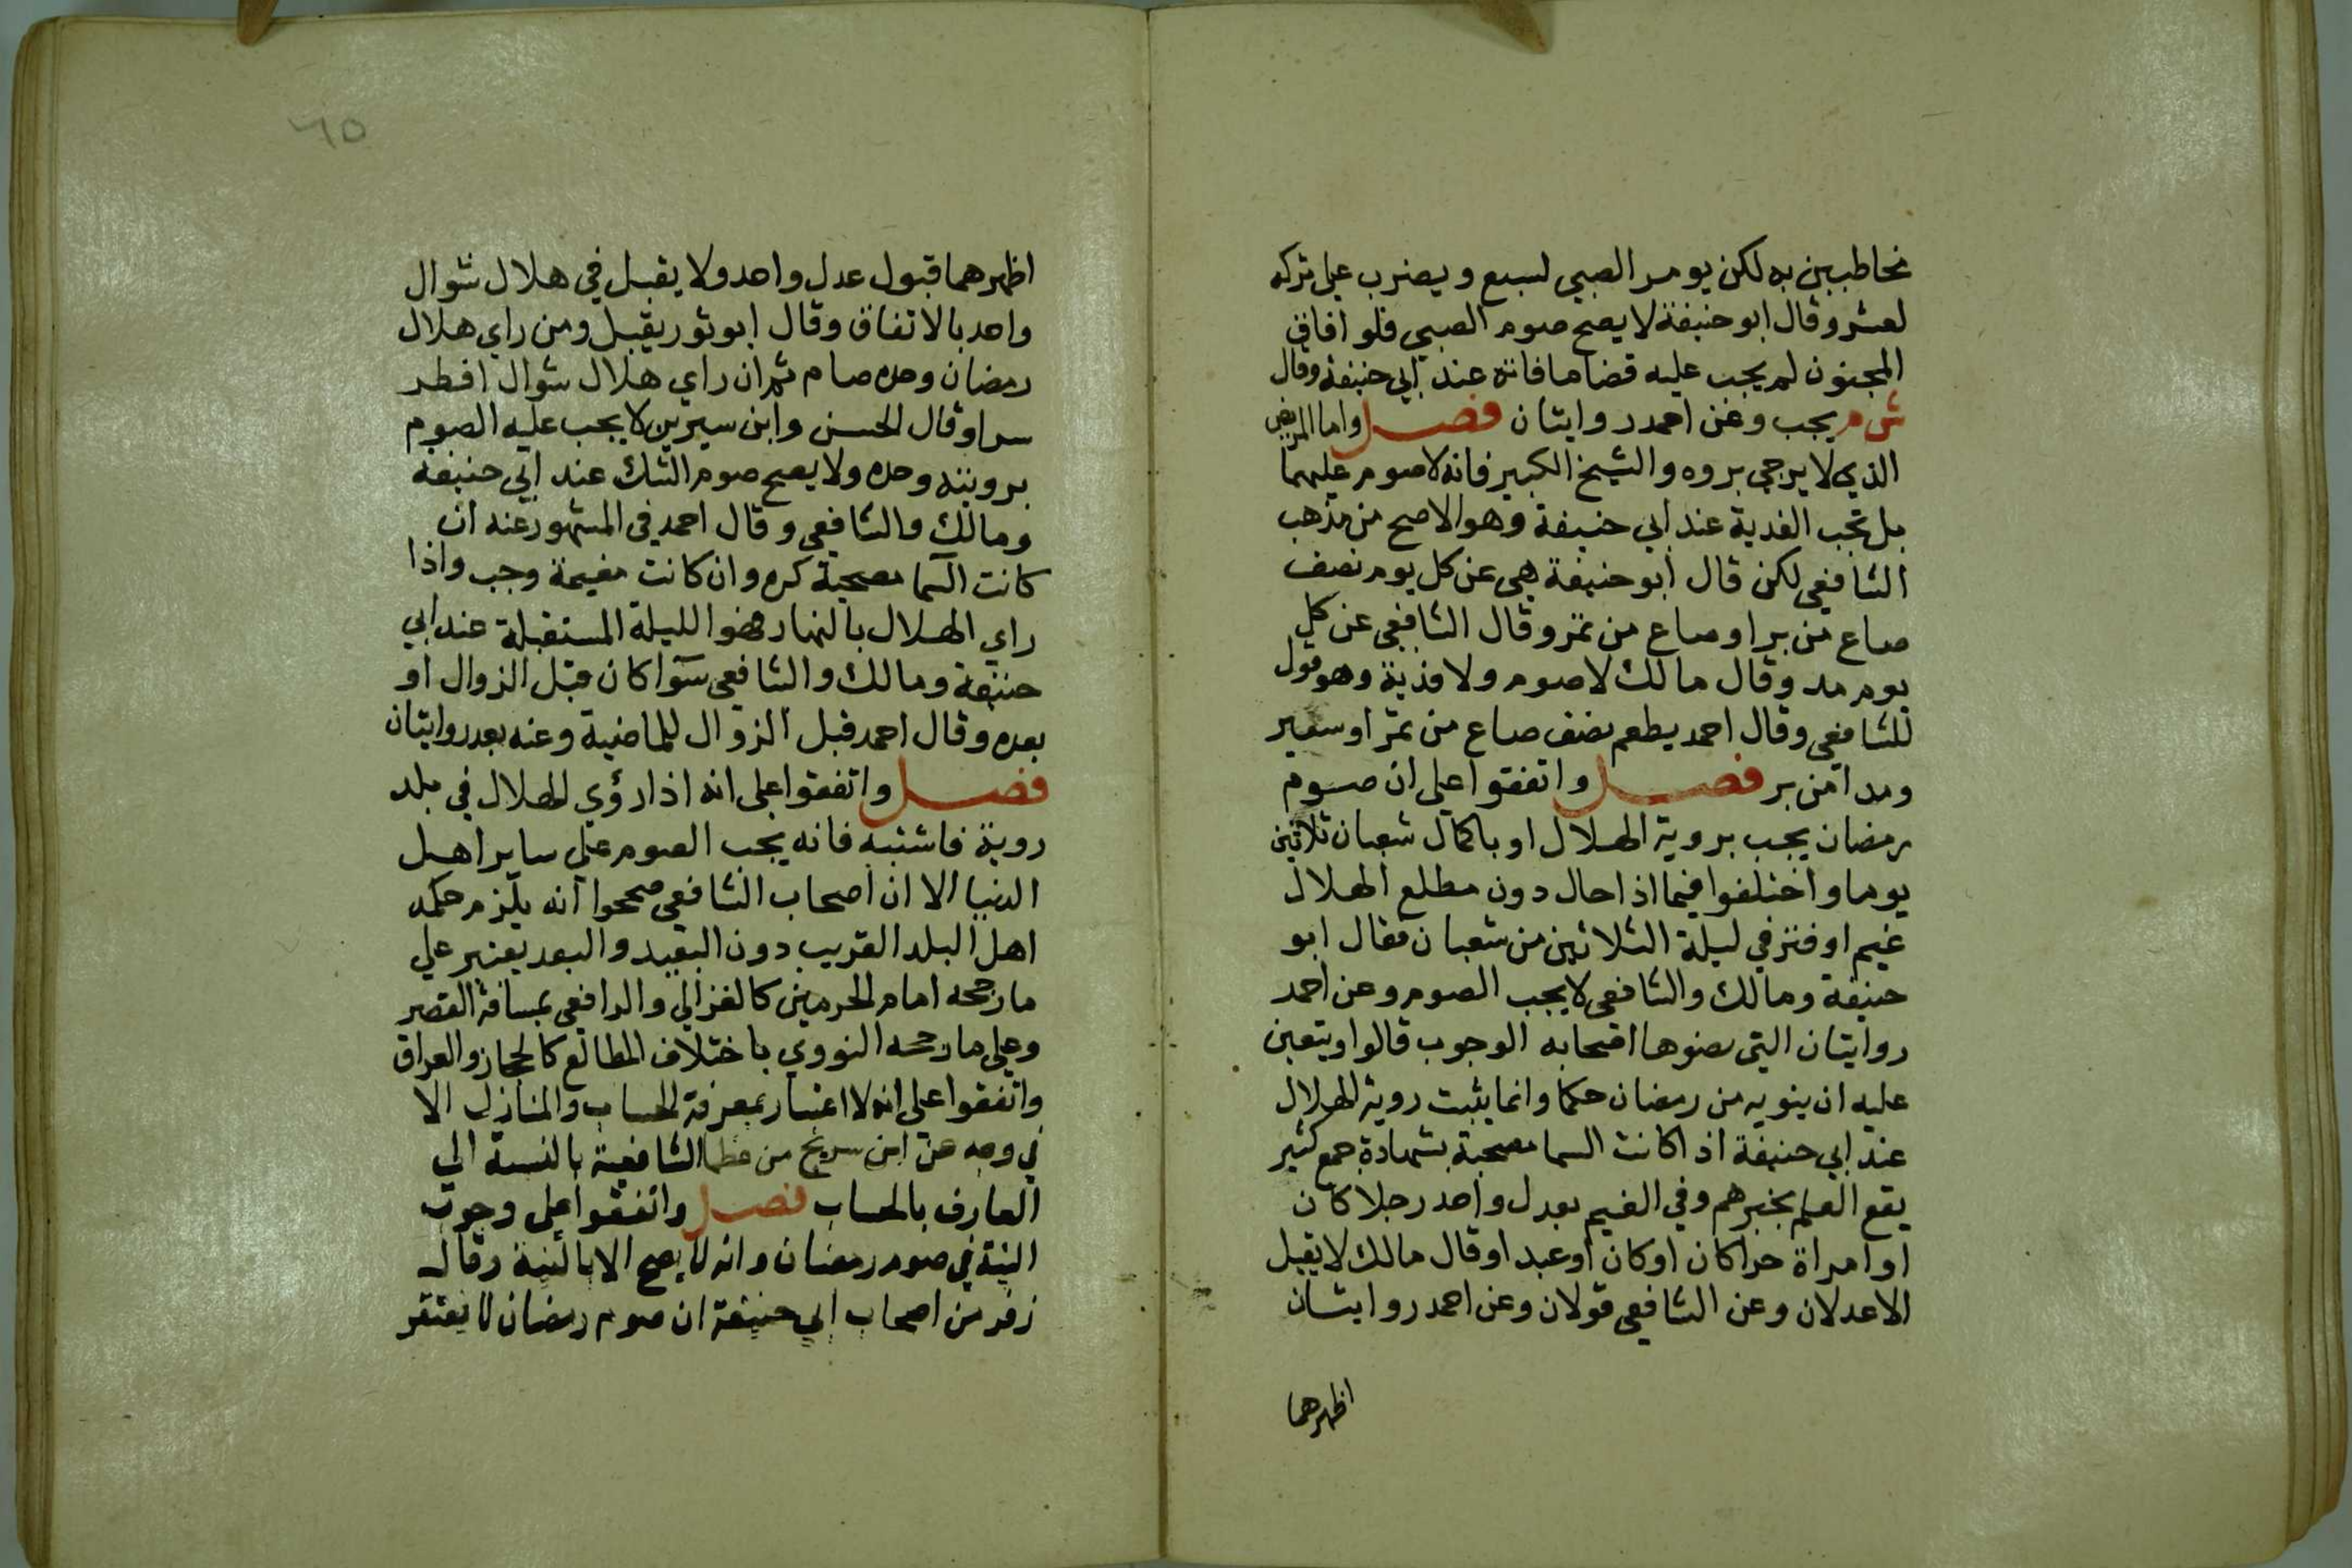 مخاطبين به لكن يومر الصبي لسبع ويضرب علي تركه
لعشر وقال ابو حنيفة لا يصح صوم الصبي فلو افاق
المجنون لم يجب عليه قضا ما فاته عند ابي حنيفة وقال
ش م يجب وعن احمد روايتان فصل واما المريض
الذي لا يرجي بروه والشيخ الكبير فانه لا صوم عليهما
بل تجب الفدية عند ابي حنيفة وهو الاصح من مذهب
الشافعي لكن قال ابو حنيفة هي عن كل يوم نصف
صاع من بر او صاع من تمر وقال الشافعي عن كل
يوم مد وقال مالك لا صوم ولا فدية وهو قول
للشافعي وقال احمد يطعم نصف صاع من تمر او شعير
ومدا من بر فصل واتفقوا علي ان صوم
رمضان يجب بروية الهلال او باكمال شعبان ثلاثين
يوما واختلفوا فيما اذا حال دون مطلع الهلال
غيم او قتر في ليلة الثلاثين من شعبان فقال ابو
حنيفة ومالك والشافعي لا يجب الصوم وعن احمد
روايتان التي نصوها اصحابه الوجوب قالوا ويتعين
عليه ان ينويه من رمضان حكما وانما يثبت روية الهلال
عند ابي حنيفة اذا كانت السما مصحية بشهادة جمع كثير
يقع العلم بخبرهم وفي الغيم بعدل واحد رجلا كان
او امراة حرا كان او كان او عبدا وقال مالك لا يقبل
الا عدلان وعن الشافعي قولان وعن احمد روايتان
اظهرهما
٦٥
اظهرهما قبول عدل واحد ولا يقبل في هلال شوال
واحد بالاتفاق وقال ابو ثور يقبل ومن راي هلال
رمضان وحده صام ثم ان راي هلال شوال افطر
سرا وقال الحسن وابن سيرين لا يجب عليه الصوم
برويته وحده ولا يصح صوم الشك عند ابي حنيفة
ومالك والشافعي وقال احمد في المشهور عنه ان
كانت السما مصحية كره وان كانت مغيمة وجب واذا
راي الهلال بالنهار فهو الليلة المستقبلة عند ابي
حنيفة ومالك والشافعي سوا كان قبل الزوال او
بعده وقال احمد قبل الزوال للماضية وعنه بعد روايتان
فصل واتفقوا علي انه اذا رؤي الهلال في بلد
روية فاشتبه فانه يجب الصوم علي ساير اهل
الدنيا الا ان اصحاب الشافعي صححوا انه يلزم حكمه
اهل البلد القريب دون البعيد والبعد يعتبر علي
ما رجحه امام الحرمين كالغزالي والرافعي بمسافة القصر
وعلي ما رجحه النووي باختلاف المطالع كالحجاز والعراق
واتفقوا علي انه لا اعتبار بمعرفة الحساب والمنازل الا
في وجه عن ابن سريج من عظما الشافعية بالنسبة الي
العارف بالحساب فصل واتفقوا علي وجوب
النية في صوم رمضان وانه لا يصح الا بالنية وقال
زفر من اصحاب ابي حنيفة ان صوم رمضان لا يفتقر